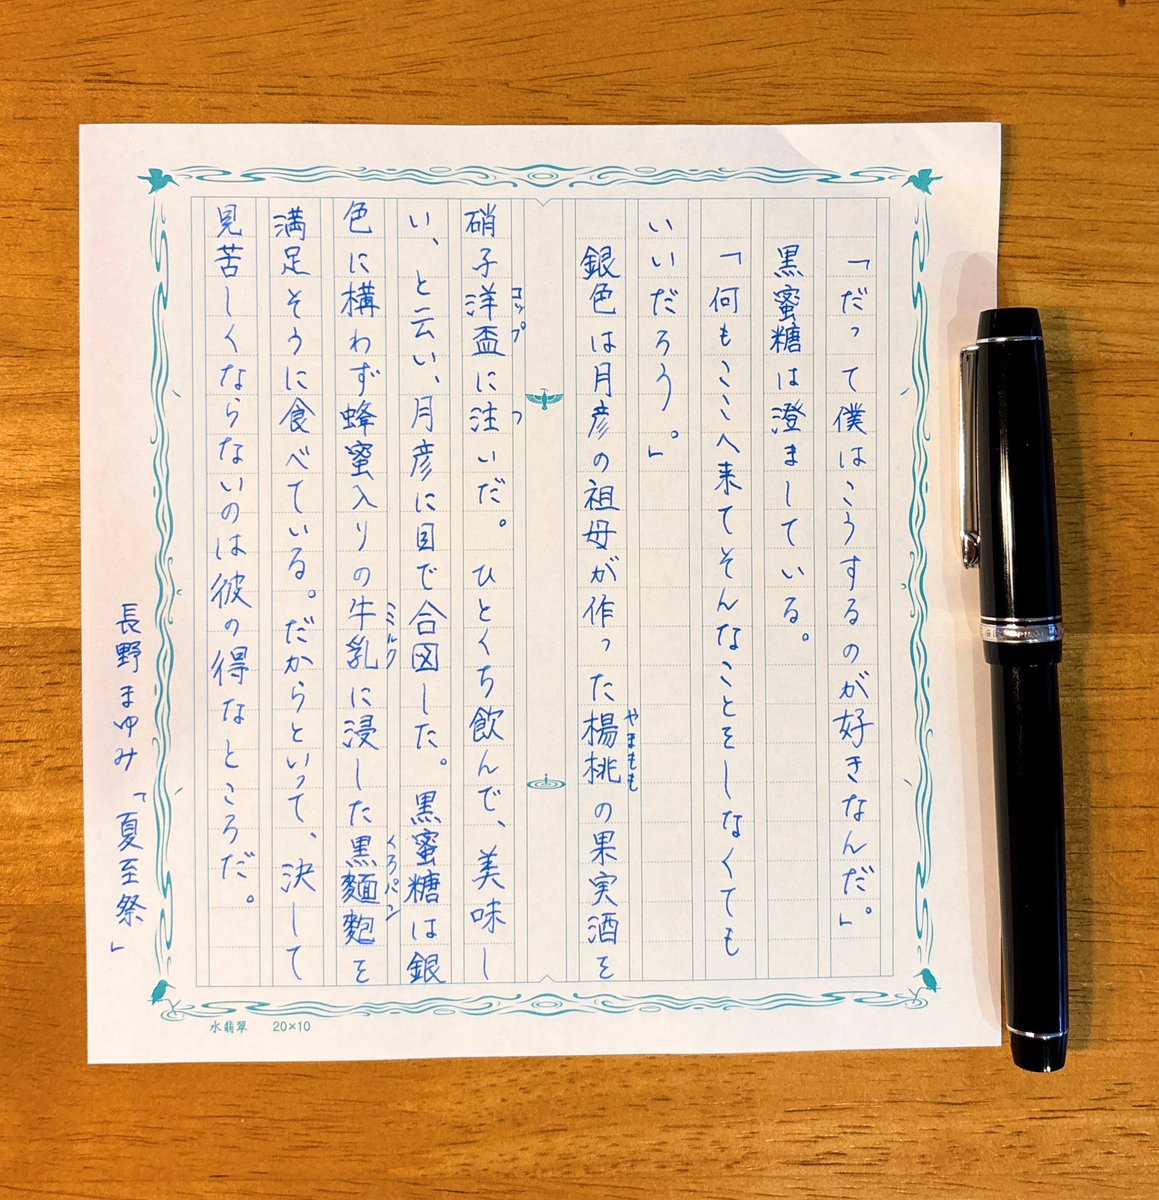 「だって僕はこうするのが好きなんだ。」
黒蜜糖は澄ましている。
「何もここへ来てそんなことをしなくても
いいだろう。」
銀色は月彦の祖母が作った楊桃の果実酒を
やまもも
硝子洋盃に注いだ。ひとくち飲んで、美味し
コップ
つ
い、と云い、月彦に目で合図した。黒蜜糖は銀
色に構わず蜂蜜入りの牛乳に浸した黒麺麭を
ミルク
くろパン
満足そうに食べている。だからといって、決して
見苦しくならないのは彼の得なところだ。
長野まゆみ「夏至祭」
水翡翠 20×10